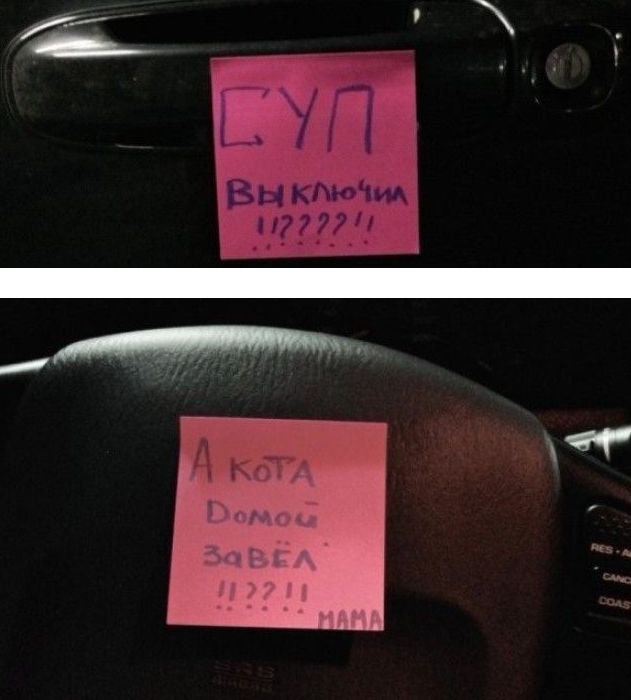 СУП
Выключил
!!????!!
А кота
Домой
завёл
!!??!!
МАМА
RES
CANC
COAS
SRS
AIRBAG